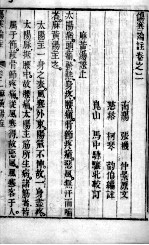 傷寒論注卷之二
南陽 張機 仲景原文
慈谿 柯琴 韻伯編註
崑山 馬中驊驤北較訂
麻黃湯證上
太陽病頭痛發熱身疼腰痛骨節疼痛惡風無汗而喘
者麻黃湯主之
太陽主一身之表風寒外束陽氣不伸故一身盡疼
太陽脈抵腰中故腰痛太陽主筋所生病諸筋者皆
屬于節故骨節疼痛從風寒得故惡風風寒客于人